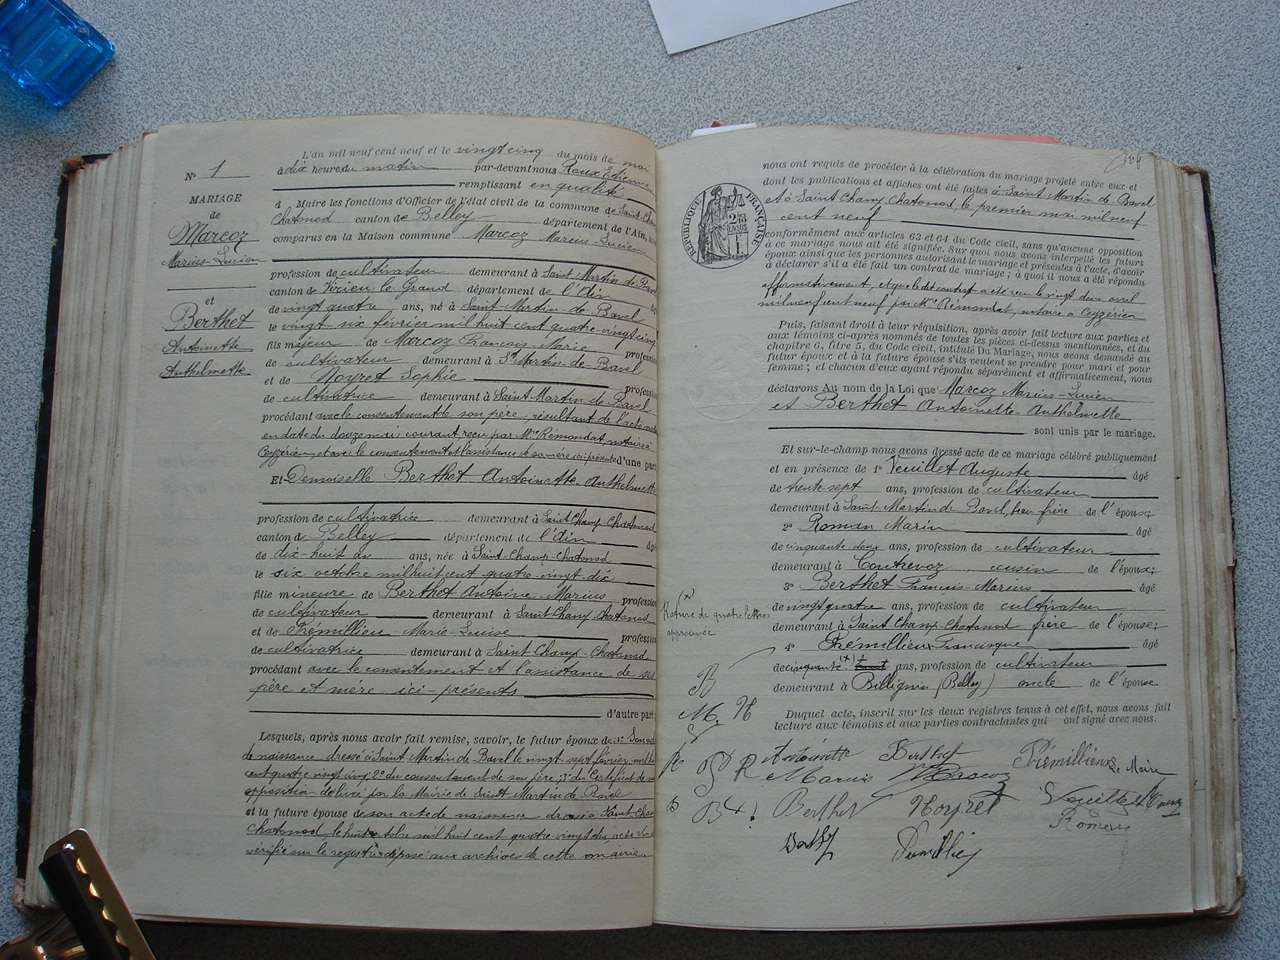 N° 1
MARIAGE
de
Marcoz
Marius-Lucien
et
Berthet
Antoinette
Anthelmette
L'an mil neuf cent neuf et le vingt cinq du mois de mai
à dix heures du matin par-devant nous Roux Etienne
remplissant en qualité
d Maire les fonctions d'Officier de l'état civil de la commune de Saint-Champ
Chatonod canton de Belley département de l'Ain,
comparus en la Maison commune Marcoz Marius-Lucien
profession de cultivateur demeurant à Saint-Martin de Bavel
canton de Virieu le Grand département de l'Ain
de vingt quatre ans, né à Saint-Martin de Bavel
le vingt six février mil huit cent quatre-vingt cinq
fils majeur de Marcoz François Marie profession
de cultivateur demeurant à St Martin de Bavel
et de Noyret Sophie profession
de cultivatrice demeurant à Saint-Martin de Bavel
procédant avec le consentement de son père, résultant de l'acte
en date du douze mai courant, reçu par Me Rémondat, notaire à
Ceyzérieu et avec le consentement et l'assistance de sa mère ici présente d'une part
Et Demoiselle Berthet Antoinette-Anthelmette
profession de cultivatrice demeurant à Saint Champ Chatonod
canton de Belley département de l'Ain âgé
de dix huit an ans, née à Saint-Champ-Chatonod
le six octobre mil huit cent quatre-vingt dix
fille mineure de Berthet Antoine-Marius profession
de cultivateur demeurant à Saint Champ Chatonod
et de Prémillieu Marie-Louise profession
de cultivatrice demeurant à Saint Champ-Chatonod
procédant avec le consentement et l'assistance de ses
père et mère ici-présents
d'autre part
Lesquels, après nous avoir fait remise, savoir, le futur époux de 1° Son acte
de naissance dressé à Saint Martin de Bavel le vingt sept février mil huit
cent quatre vingt cinq 2° du consentement de son père; 3° du Certificat de non
opposition délivré par la Mairie de Saint Martin de Bavel
et la future épouse de son acte de naissance dressé à Saint-Champ
Chatonod le huit octobre mil huit cent quatre vingt dix,
vérifié sur le registre déposé aux archives de cette mairie
nous ont requis de procéder à la célébration du mariage projeté entre eux et
dont les publications et affiches ont été faites à Saint Martin de Bavel
et à Saint Champ Chatonod, le premier mai mil neuf
cent neuf
RÉPUBLIQUE FRANÇAISE
conformément aux articles 63 et 64 du Code civil, sans qu'aucune opposition
à ce mariage nous ait été signifiée. Sur quoi nous avons interpellé les futurs
époux ainsi que les personnes autorisant le mariage et présentes à l'acte, d'avoir
à déclarer s'il a été fait un contrat de mariage; à quoi il nous a été répondu
affirmativement, et que le dit contrat a été reçu le vingt deux avril
mil neuf cent neuf par Me Rémondat, notaire à Ceyzérieu
Puis, faisant droit à leur réquisition, après avoir fait lecture aux parties et
aux témoins ci-après nommés de toutes les pièces ci-dessus mentionnées, et du
chapitre 6, titre 5, du Code civil, intitulé Du Mariage, nous avons demandé au
futur époux et à la future épouse s'ils veulent se prendre pour mari et pour
femme; et chacun d'eux ayant répondu séparément et affirmativement, nous
déclarons Au nom de la Loi que Marcoz Marius-Lucien
et Berthet Antoinette Anthelmette
sont unis par le mariage.
Et sur-le-champ nous avons dressé acte de ce mariage célébré publiquement
et en présence de 1° Veuillet Auguste âgé
de trente sept ans, profession de cultivateur
demeurant à Saint Martin de Bavel, beau frère de l'époux;
2° Roman Marin âgé
de cinquante deux ans, profession de cultivateur
demeurant à Contrevoz cousin de l'époux;
3° Berthet Francis-Marius âgé
de vingt quatre ans, profession de cultivateur
demeurant à Saint Champ Chatonod frère de l'épouse;
4° Prémillieux Francisque âgé
de cinquante (x) ans, profession de cultivateur
demeurant à Billignin (Belley) oncle de l'épouse
(x)
Rature de quatre lettres
approuvée
Duquel acte, inscrit sur les deux registres tenus à cet effet, nous avons fait
lecture aux témoins et aux parties contractantes qui ont signé avec nous.
Antoinette Berthet Prémillieux Le Maire
Marius Marcoz Veuillet
Berthet Noyret